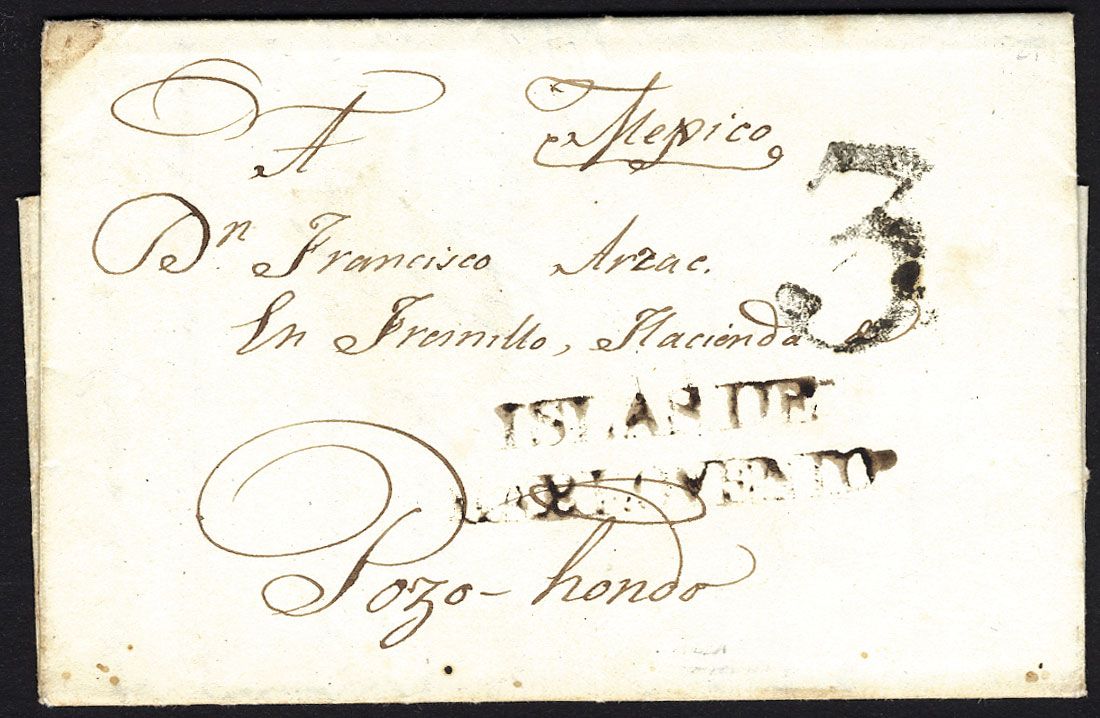 A Mexico
3
Dn Francisco Arzac.
En Fresnillo, Hacienda de
ISLAS DE
BARLOVENTO
Pozo-hondo